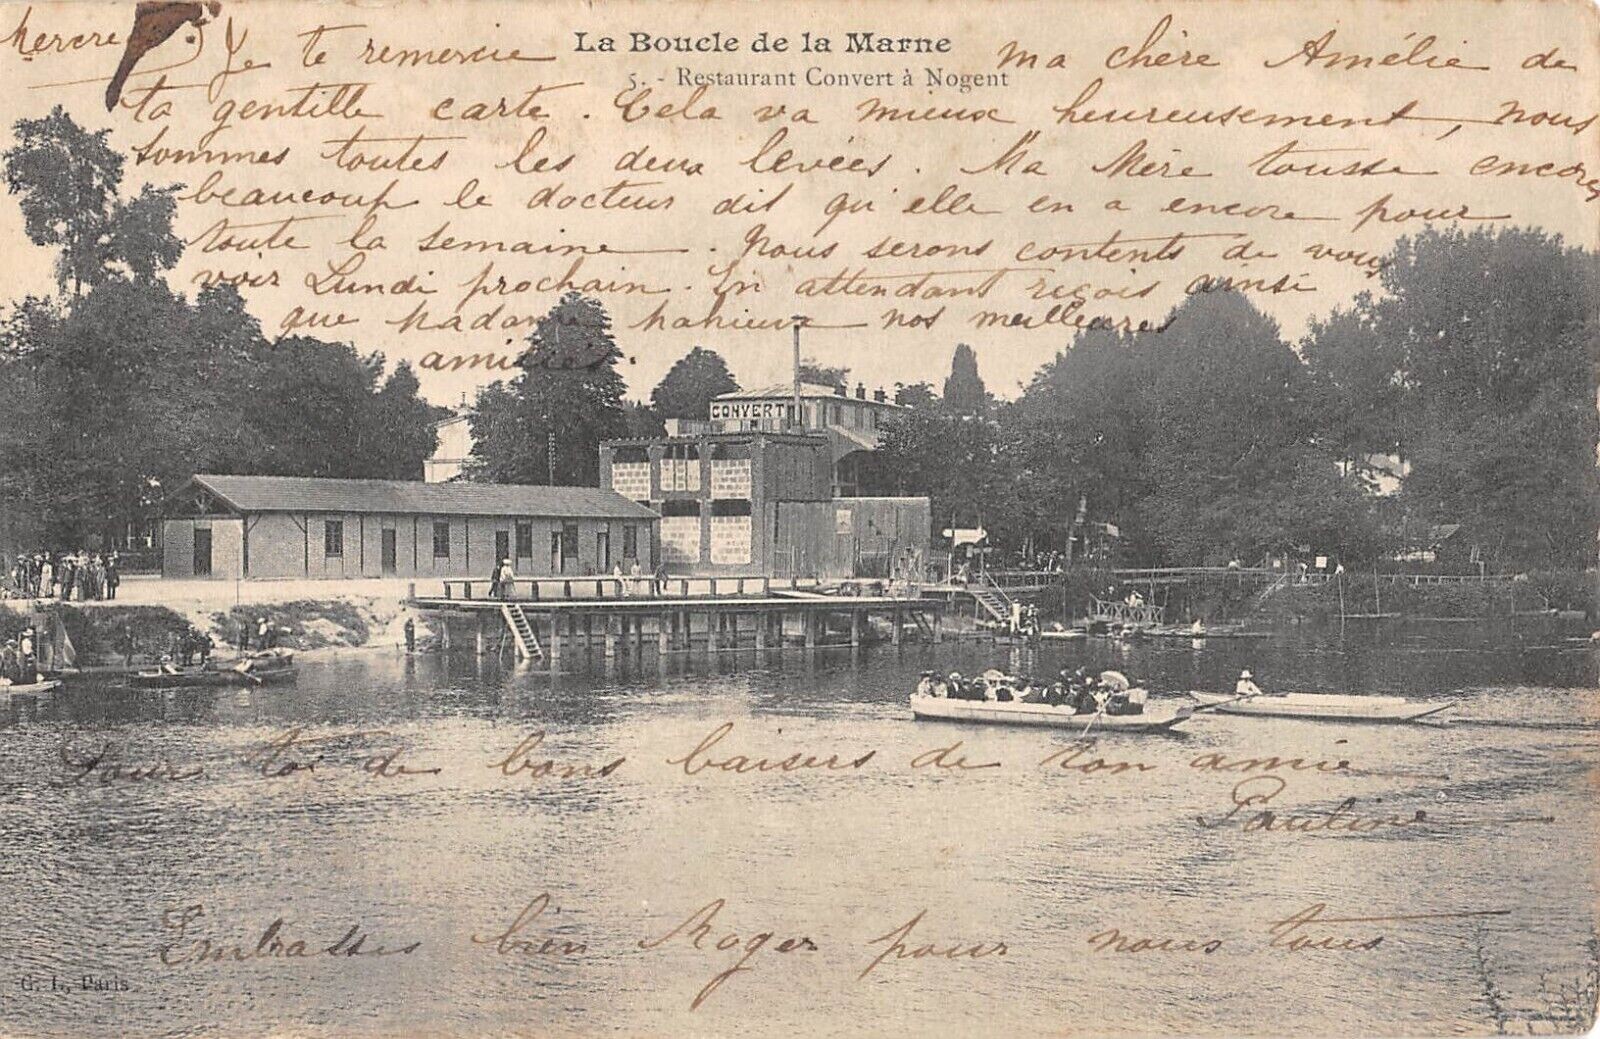 La Boucle de la Marne
5. - Restaurant Convert à Nogent
Je te remercie ma chère Amélie de
ta gentille carte. Cela va mieux heureusement, nous
sommes toutes les deux levées. Ma Mère tousse encore
beaucoup le docteur dit qu'elle en a encore pour
toute la semaine. Nous serons contents de vous
voir Lundi prochain. En attendant reçois ainsi
que Madame nos meilleures
amitiés.
CONVERT
Pour toi de bons baisers de ton amie
Pauline
Embrasses bien Roger pour nous tous
G. I., Paris